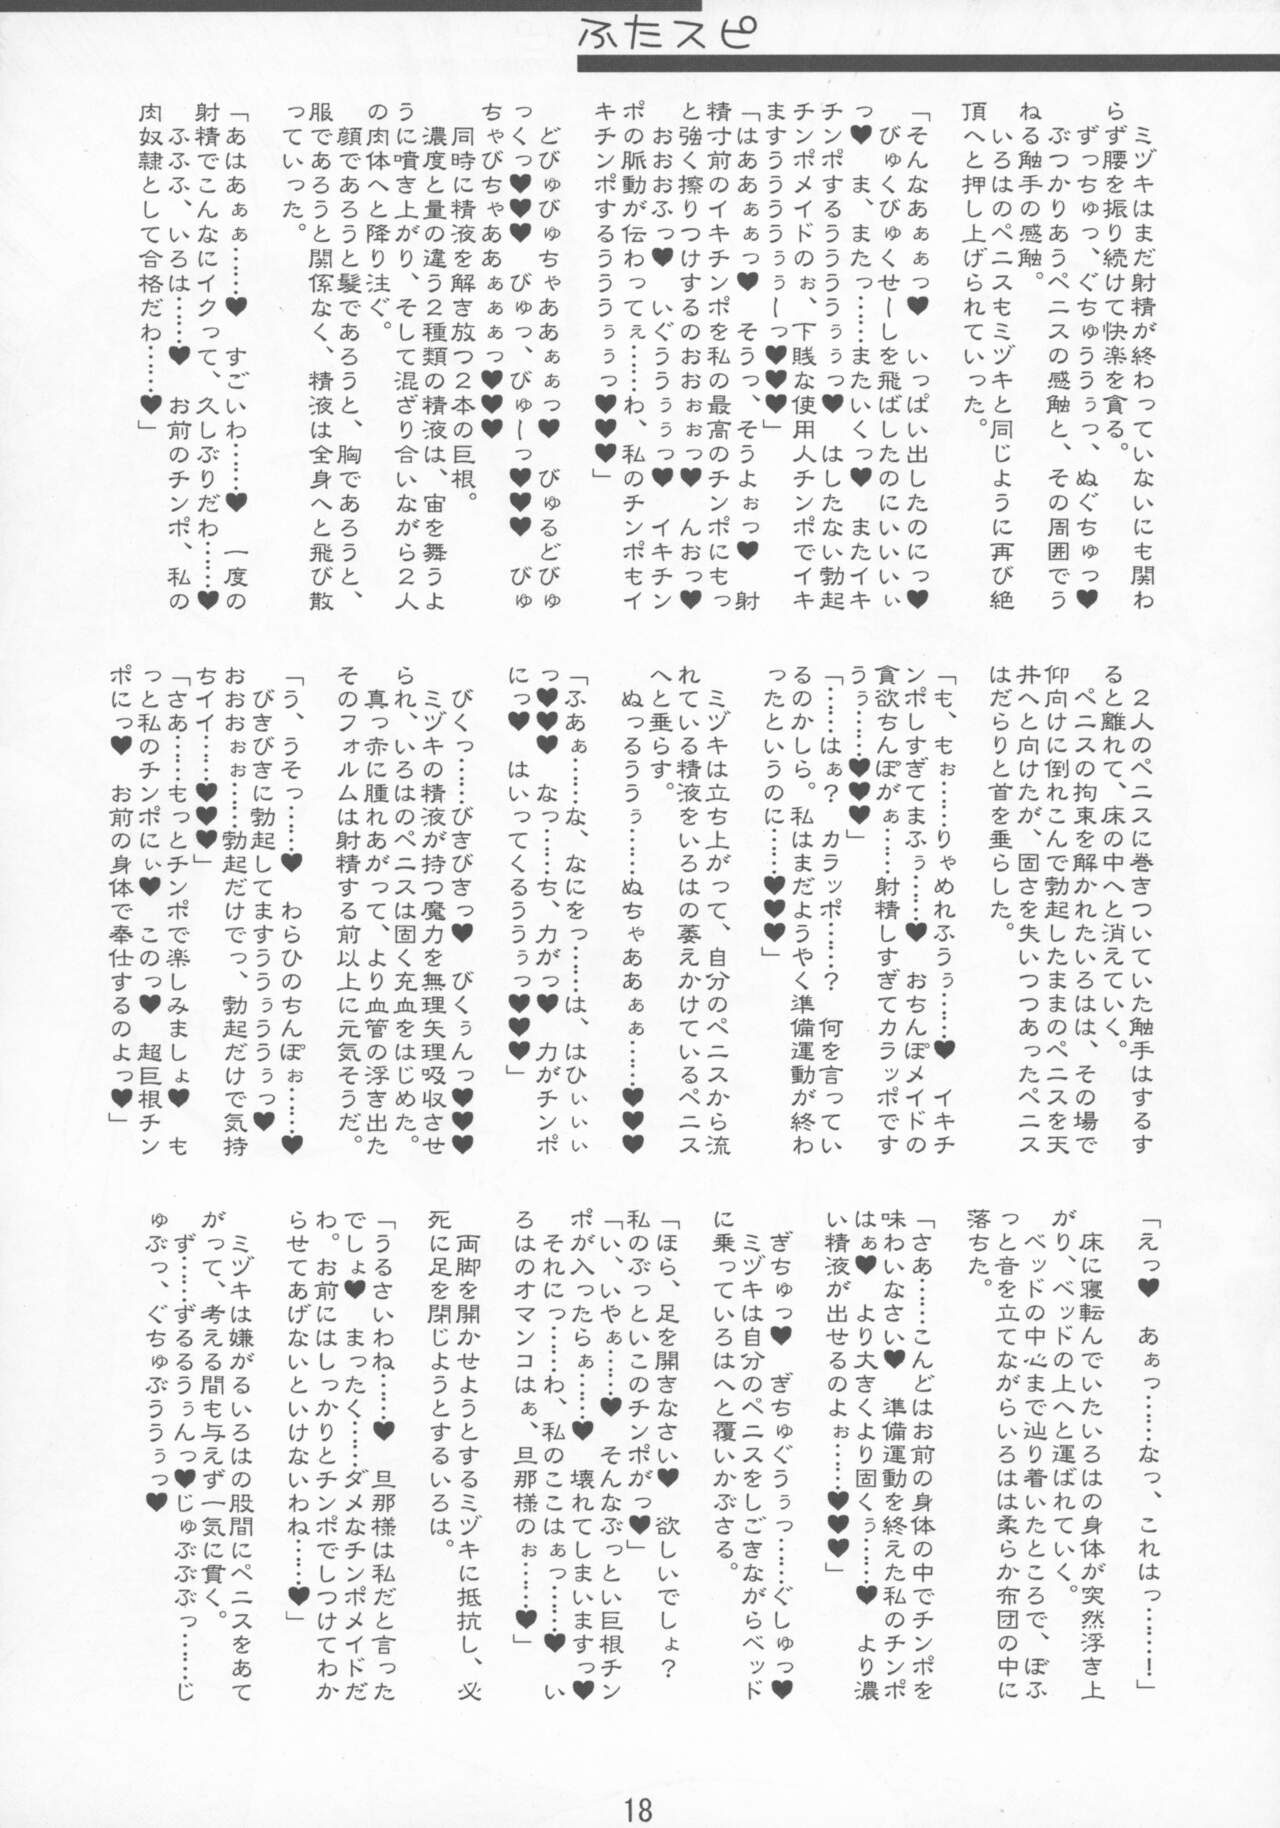 ふたスピ
ミヅキはまだ射精が終わっていないにも関わ
らず腰を振り続けて快楽を貪る。
ずっちゅっ、ぐちゅううぅっ、ぬぐちゅっ♥
ぶつかりあうペニスの感触と、その周囲でう
ねる触手の感触。
いろはのペニスもミヅキと同じように再び絶
頂へと押し上げられていった。
「そんなあぁぁっ♥　いっぱい出したのにっ♥
びゅくびゅくせーしを飛ばしたのにいいいぃ
っ♥　ま、またっ……またいくっ♥　またイキ
チンポするうううぅぅっ♥　はしたない勃起
チンポメイドのぉ、下賎な使用人チンポでイキ
ますうううぅぅーっ♥♥♥」
「はああぁぁっ♥　そうっ、そうよぉっ♥　射
精寸前のイキチンポを私の最高のチンポにもっ
と強く擦りつけするのおおぉぉっ♥　んおっ♥
おおおふっ♥　いぐううぅぅっ♥　イキチン
ポの脈動が伝わってぇ……わ、私のチンポもイ
キチンポするうううぅぅっ♥♥♥」
どびゅびゅちゃああぁぁっ♥　びゅるどびゅ
っくっ♥♥♥　びゅっ、びゅーっ♥♥♥　びゅ
ちゃびちゃああぁぁぁっ♥♥♥
同時に精液を解き放つ２本の巨根。
濃度と量の違う２種類の精液は、宙を舞うよ
うに噴き上がり、そして混ざり合いながら２人
の肉体へと降り注ぐ。
顔であろうと髪であろうと、胸であろうと、
服であろうと関係なく、精液は全身へと飛び散
っていった。
「あはあぁぁ……♥　すごいわ……♥　一度の
射精でこんなにイクって、久しぶりだわ……♥
ふふふ、いろは……♥　お前のチンポ、私の
肉奴隷として合格だわ……♥」
２人のペニスに巻きついていた触手はするす
ると離れて、床の中へと消えていく。
ペニスの拘束を解かれたいろはは、その場で
仰向けに倒れこんで勃起したままのペニスを天
井へと向けたが、固さを失いつつあったペニス
はだらりと首を垂らした。
「も、もぉ……りゃめれふうぅ……♥　イキチ
ンポしすぎてまふぅ……♥　おちんぽメイドの
貪欲ちんぽがぁ……射精しすぎてカラッポです
うぅ……♥♥♥」
「……はぁ？　カラッポ……？　何を言ってい
るのかしら。私はまだようやく準備運動が終わ
ったというのに……♥♥♥」
ミヅキは立ち上がって、自分のペニスから流
れている精液をいろはの萎えかけているペニス
へと垂らす。
ぬっるううぅ……ぬちゃああぁぁ……♥♥♥
「ふあぁ……な、なにをっ……は、はひぃぃぃ
っ♥♥♥　なっ……ち、力がっ♥　力がチンポ
にっ♥　はいってくるううぅっ♥♥♥」
びくっ……びきびきっ♥　びくぅんっ♥♥♥
ミヅキの精液が持つ魔力を無理矢理吸収させ
られ、いろはのペニスは固く充血をはじめた。
真っ赤に腫れあがって、より血管の浮き出た
そのフォルムは射精する前以上に元気そうだ。
「う、うそっ……♥　わらひのちんぽぉ……♥
びきびきに勃起してますううぅううぅっ♥
おおおぉぉ……勃起だけでっ、勃起だけで気持
ちイイ……♥♥♥」
「さあ……もっとチンポで楽しみましょ♥　も
っと私のチンポにぃ♥　このっ♥　超巨根チン
ポにっ♥　お前の身体で奉仕するのよっ♥」
「えっ♥　あぁっ……なっ、これはっ……！」
床に寝転んでいたいろはの身体が突然浮き上
がり、ベッドの上へと運ばれていく。
ベッドの中心まで辿り着いたところで、ぼふ
っと音を立てながらいろはは柔らか布団の中に
落ちた。
「さあ……こんどはお前の身体の中でチンポを
味わいなさい♥　準備運動を終えた私のチンポ
はぁ♥　より大きくより固くぅ……♥　より濃
い精液が出せるのよぉ……♥♥♥」
ぎちゅっ♥　ぎちゅぐうぅっ……ぐしゅっ♥
ミヅキは自分のペニスをしごきながらベッド
に乗っているいろはへと覆いかぶさる。
「ほら、足を開きなさい♥　欲しいでしょ？
私のぶっといこのチンポがっ♥」
「い、いやぁ……♥　そんなぶっとい巨根チン
ポが入ったらぁ……♥　壊れてしまいますっ♥
それにっ……わ、私のここはぁっ……♥　い
ろはのオマンコはぁ、旦那様のぉ……♥」
両脚を開かせようとするミヅキに抵抗し、必
死に足を閉じようとするいろは。
「うるさいわね……♥　旦那様は私だと言った
でしょ♥　まったく……ダメなチンポメイドだ
わ。お前にはしっかりとチンポでしつけてわか
らせてあげないといけないわね……♥」
ミヅキは嫌がるいろはの股間にペニスをあて
がって、考える間も与えず一気に貫く。
ず……ずるるうぅんっ♥じゅぶぶぶっ……じ
ゅぶっ、ぐちゅぶううぅっ♥
18